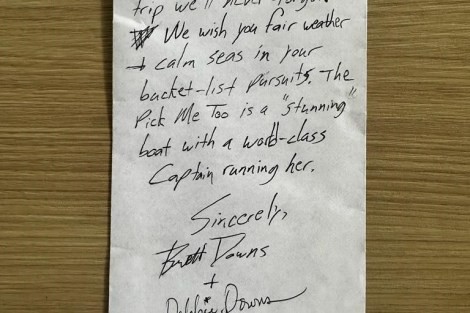 trip we'll never forget.
We wish you fair weather
+ calm seas in your
bucket-list pursuits. The
Pick Me Too is a "stunning"
boat with a world-class
Captain running her.
Sincerely,
Brett Downs
+
Debbie Downs